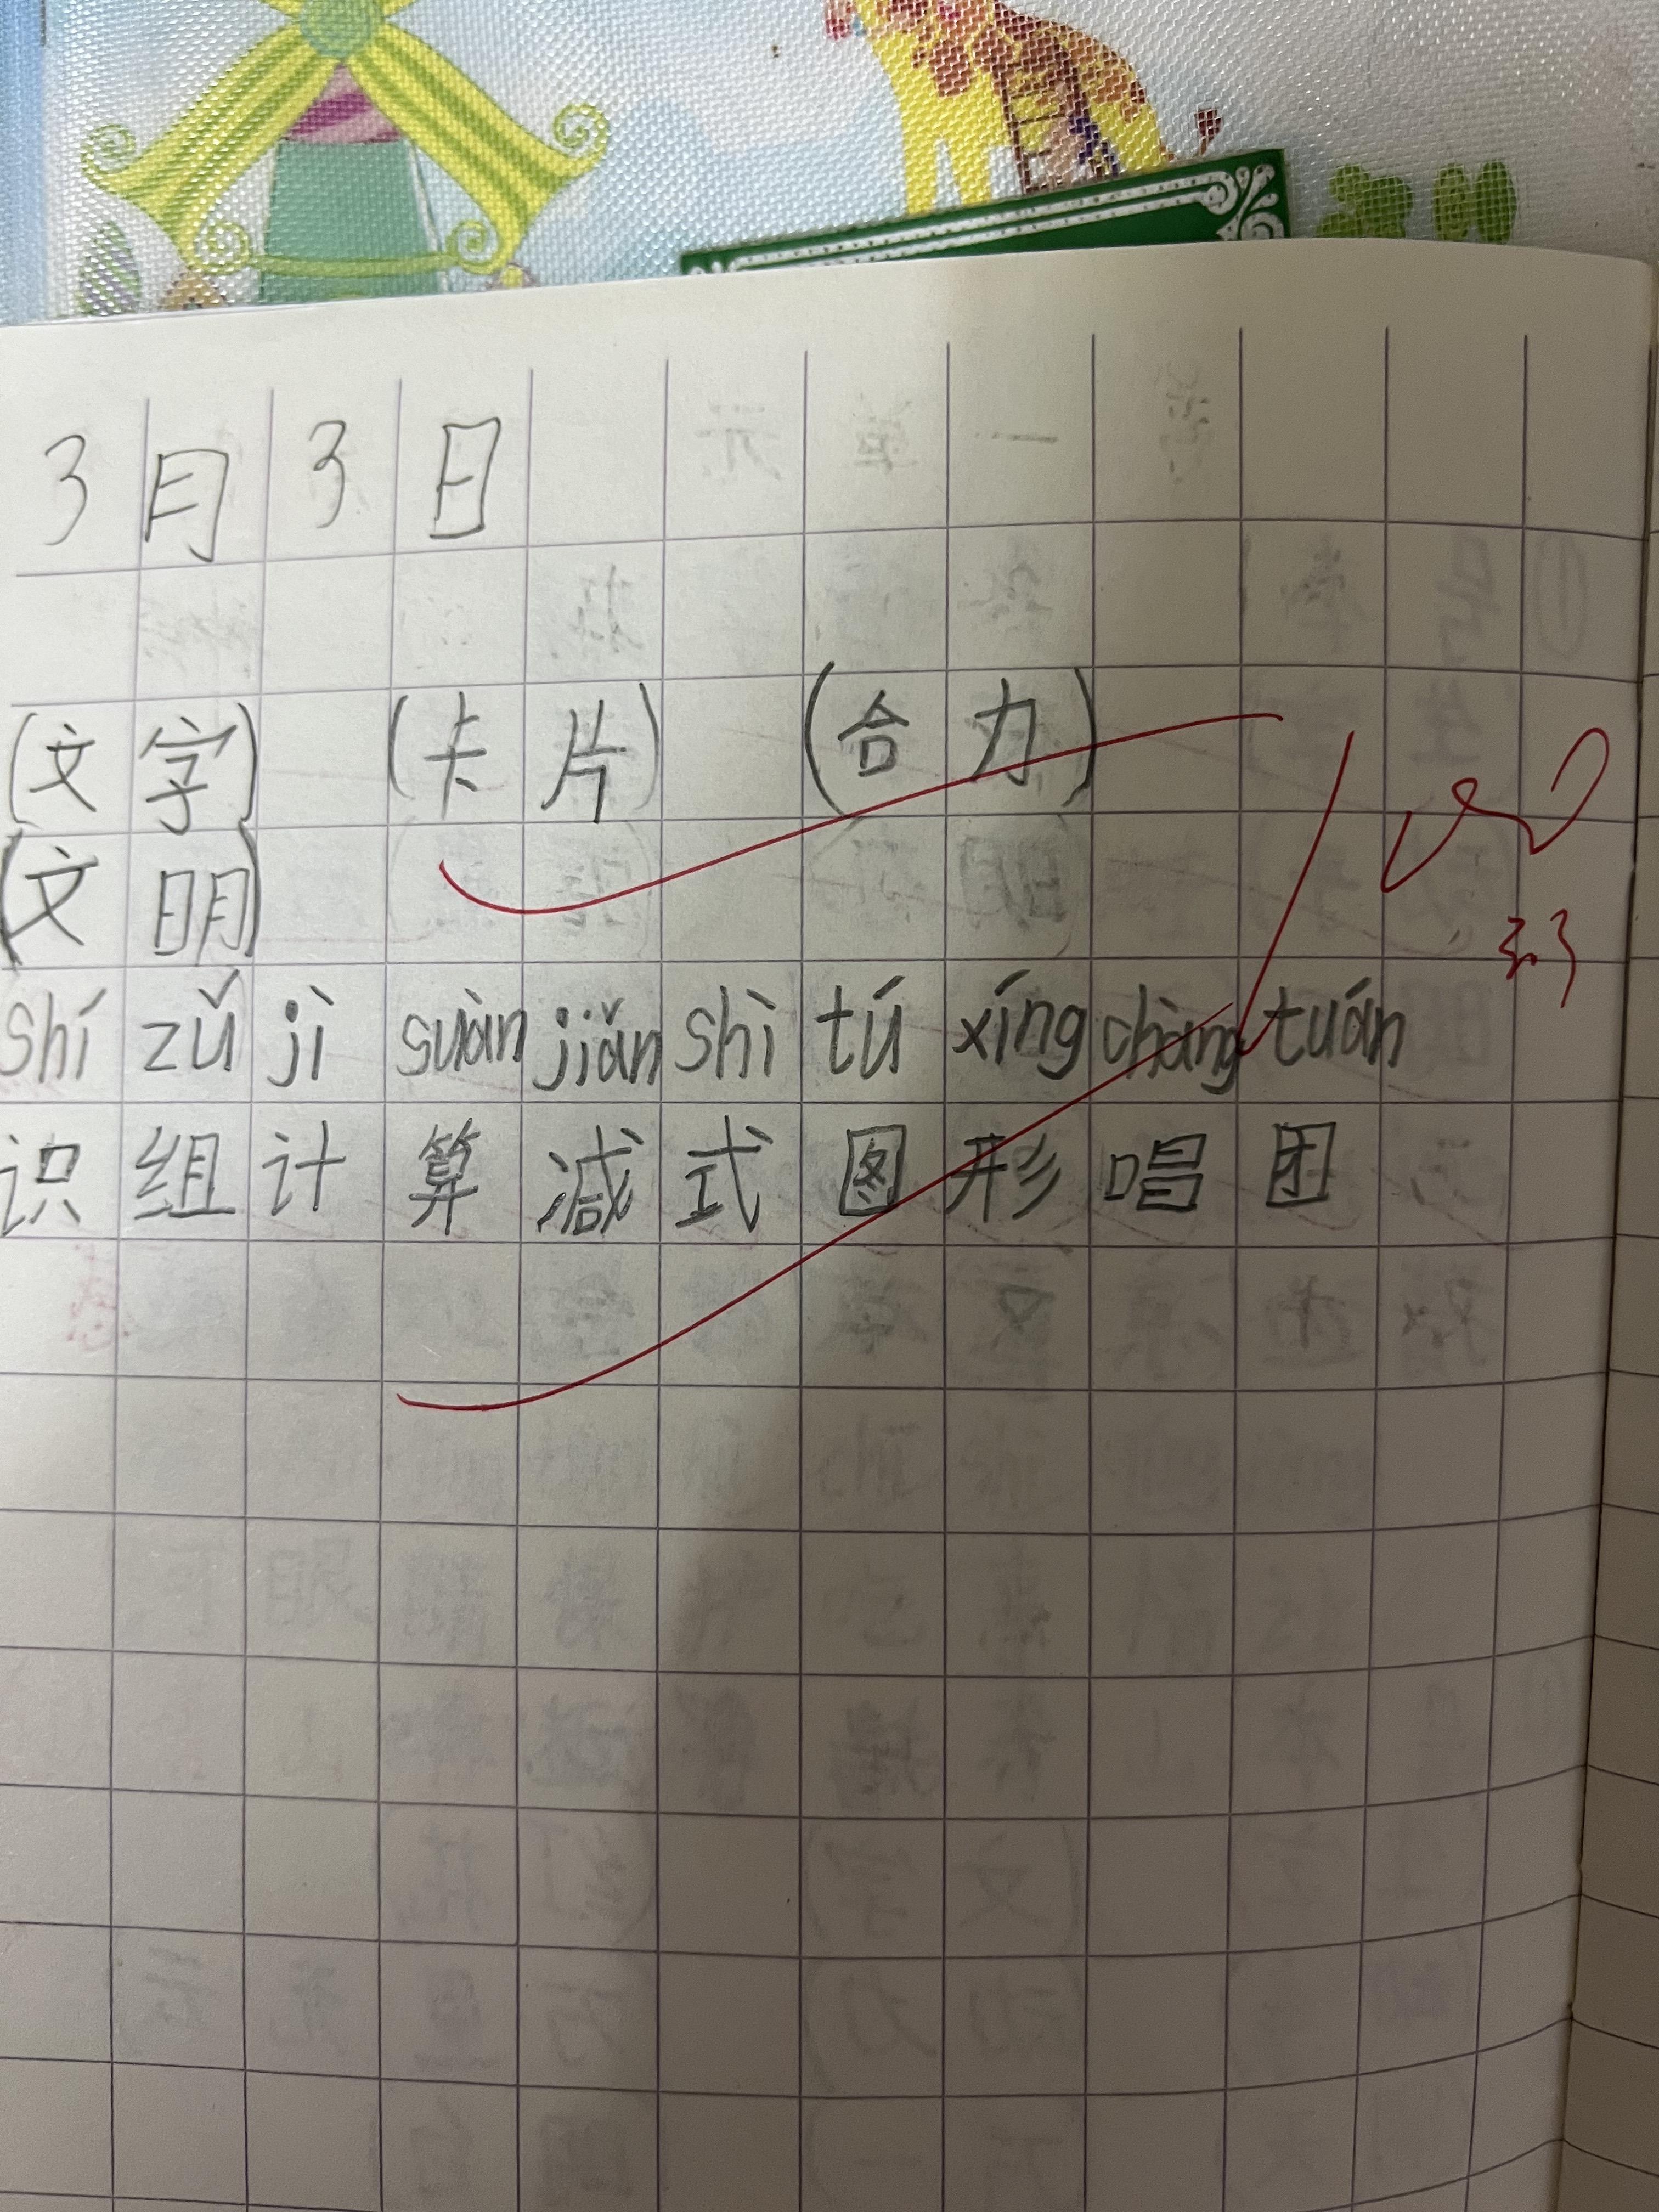 3月3日
(文字) (卡片) (合力)
(文明)
shí zǔ jì suàn jiǎn shì tú xíng chàng tuán
识组计算减式图形唱团